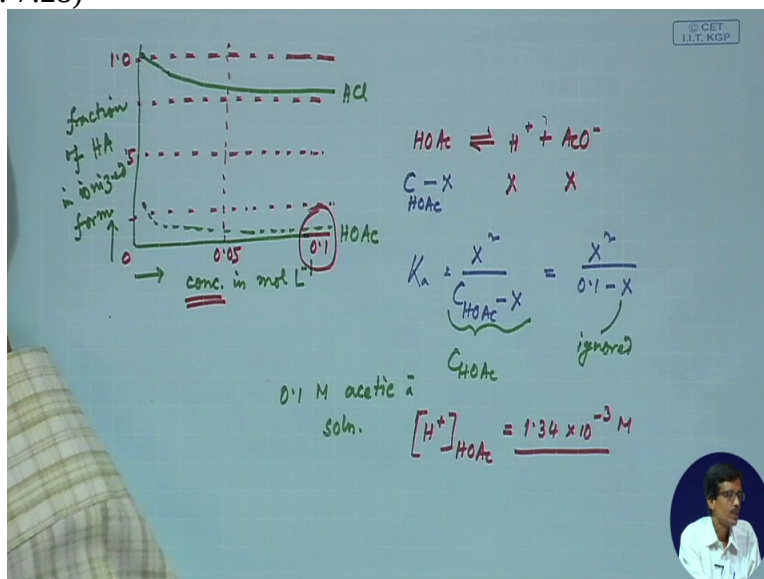 © CET
I.I.T. KGP
1.0
HCl
fraction
of HA
in ionized
form
.5
HOAc
0
0.05
0.1
conc. in mol L⁻¹
HOAc ⇌ H⁺ + AcO⁻
C_HOAc − x x x
Kₐ = x² / (C_HOAc − x) = x² / (0.1 − x)
C_HOAc
ignored
0.1 M acetic a
soln.
[H⁺]_HOAc = 1.34 × 10⁻³ M